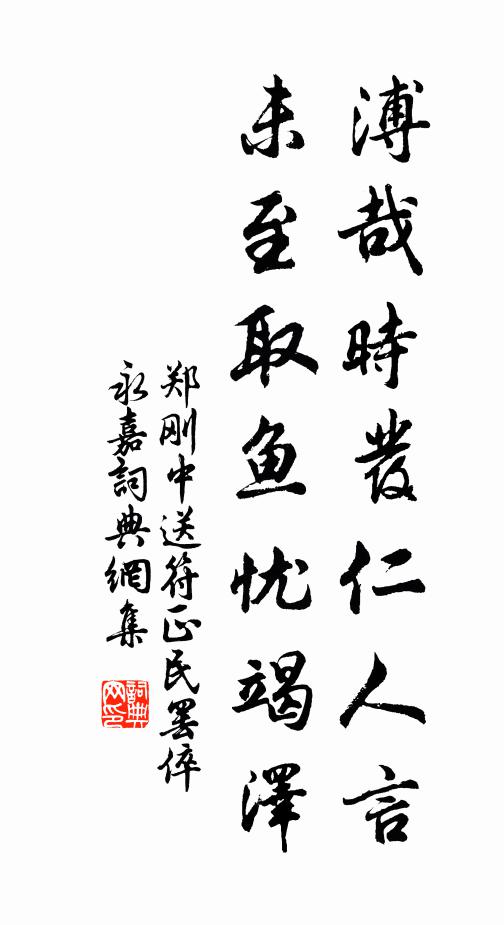 溥哉時發仁人言
未至取鱼忧竭澤
郑刚中送符正民罢倅
永嘉詞典網集
詞典网印